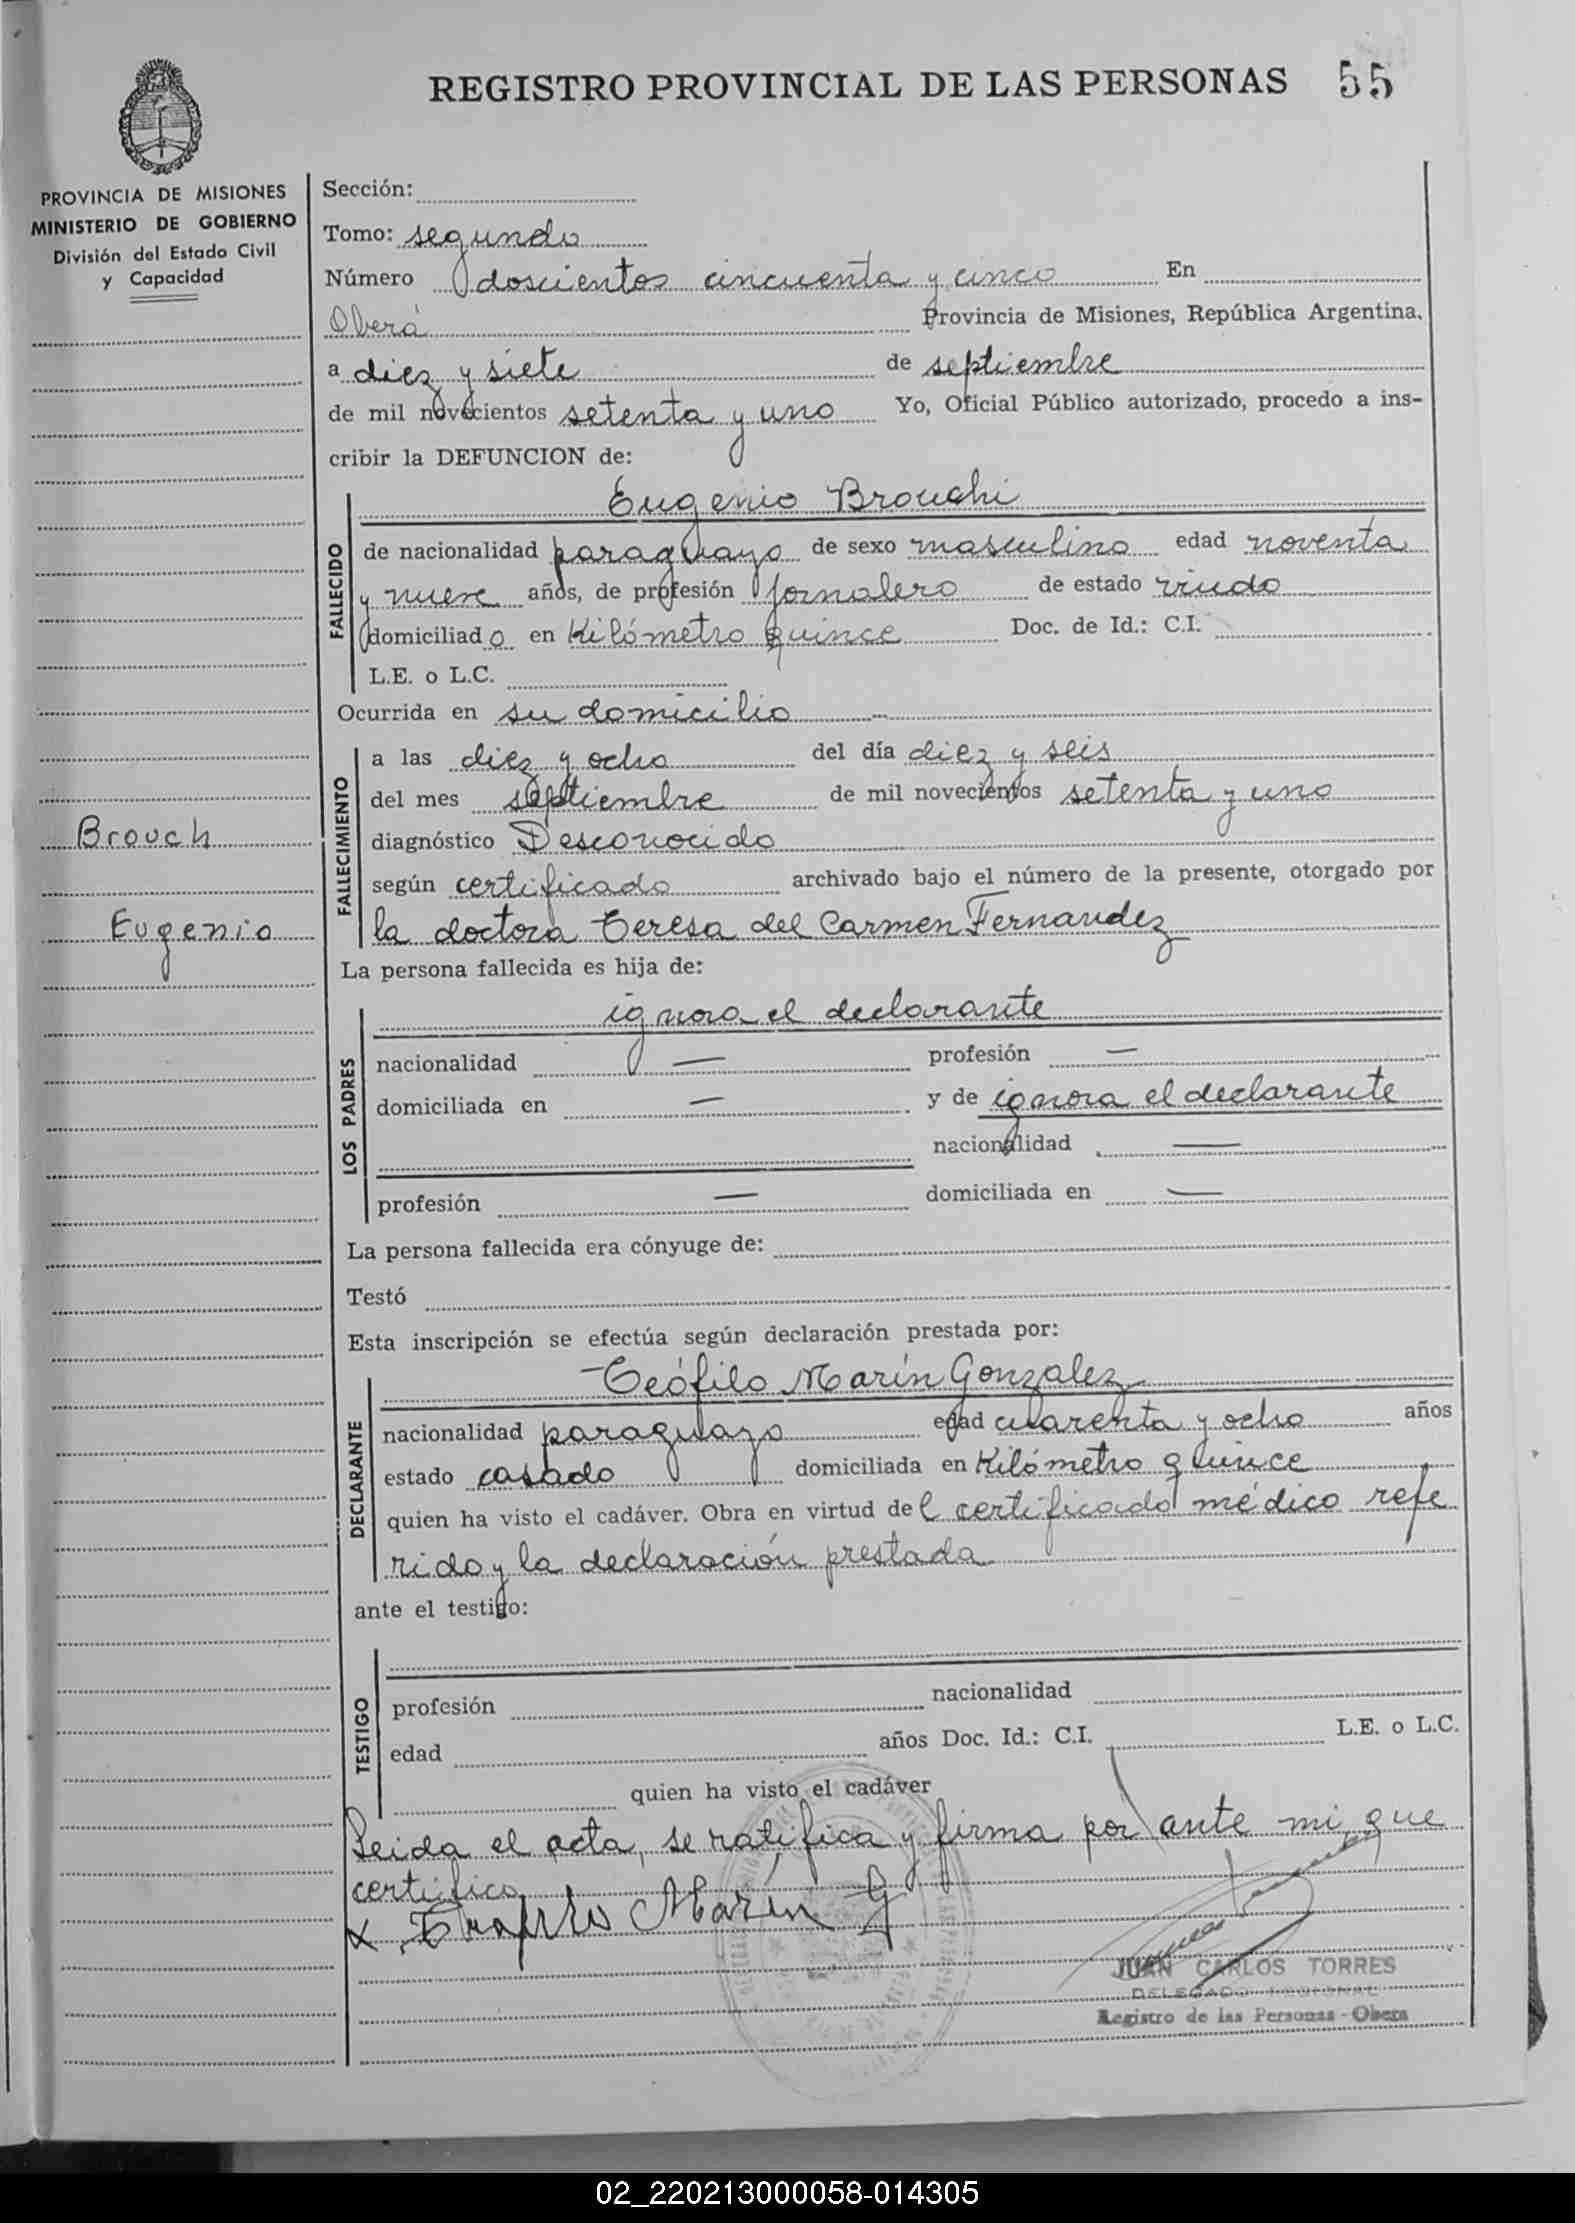 REGISTRO PROVINCIAL DE LAS PERSONAS 55
PROVINCIA DE MISIONES
MINISTERIO DE GOBIERNO
División del Estado Civil
y Capacidad
Brouch
Eugenio
Sección:
Tomo: segundo
Número doscientos cincuenta y cinco En
Oberá Provincia de Misiones, República Argentina,
a diez y siete de septiembre
de mil novecientos setenta y uno Yo, Oficial Público autorizado, procedo a ins-
cribir la DEFUNCION de:
Eugenio Brouchi
FALLECIDO
de nacionalidad paraguayo de sexo masculino edad noventa
y nueve años, de profesión jornalero de estado viudo
domiciliado en Kilómetro quince Doc. de Id.: C.I.
L.E. o L.C.
Ocurrida en su domicilio
FALLECIMIENTO
a las diez y ocho del día diez y seis
del mes septiembre de mil novecientos setenta y uno
diagnóstico Desconocido
según certificado archivado bajo el número de la presente, otorgado por
la doctora Teresa del Carmen Fernandez
La persona fallecida es hija de:
ignora el declarante
LOS PADRES
nacionalidad — profesión —
domiciliada en — y de ignora el declarante
nacionalidad —
profesión — domiciliada en —
La persona fallecida era cónyuge de:
Testó
Esta inscripción se efectúa según declaración prestada por:
Teófilo Marín Gonzalez
DECLARANTE
nacionalidad paraguayo edad cuarenta y ocho años
estado casado domiciliada en Kilómetro quince
quien ha visto el cadáver. Obra en virtud del certificado médico refe
rido y la declaración prestada
ante el testigo:
TESTIGO
profesión nacionalidad
edad años Doc. Id.: C.I. L.E. o L.C.
quien ha visto el cadáver
Leida el acta, se ratifica y firma por ante mi, que
certifico
x Marín G
JUAN CARLOS TORRES
DELEGADO REGIONAL
Registro de las Personas - Obera
02_220213000058-014305